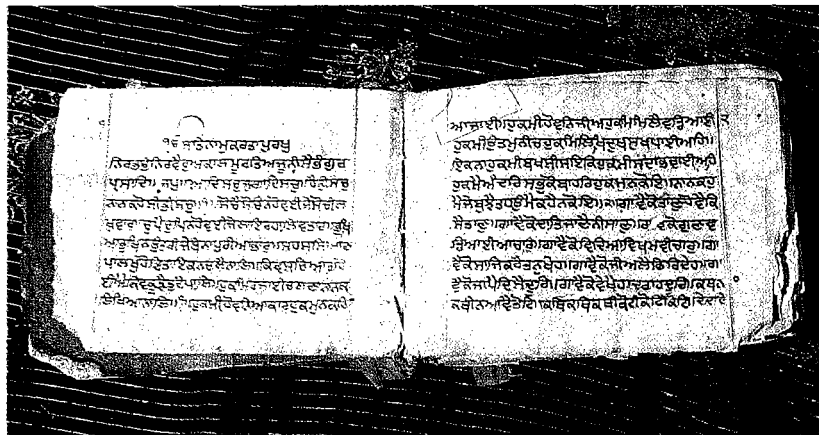 ੴ ਸਤਿਨਾਮੁਕਰਤਾਪੁਰਖੁ
ਨਿਰਭਉਨਿਰਵੈਰੁਅਕਾਲਮੂਰਤਿਅਜੂਨੀਸੈਭੰਗੁਰ
ਪ੍ਰਸਾਦਿ॥ਜਪੁ॥ਆਦਿਸਚੁਜੁਗਾਦਿਸਚੁ॥ਹੈਭੀਸਚੁ
ਨਾਨਕਹੋਸੀਭੀਸਚੁ॥੧॥ਸੋਚੈਸੋਚਿਨਹੋਵਈਜੇਸੋਚੀਲ
ਖਵਾਰ॥ਚੁਪੈਚੁਪਨਹੋਵਈਜੇਲਾਇਰਹਾਲਿਵਤਾਰ॥ਭੁਖਿ
ਆਭੁਖਨਉਤਰੀਜੇਬੰਨਾਪੁਰੀਆਭਾਰ॥ਸਹਸਸਿਆਣ
ਪਾਲਖਹੋਹਿਤਾਇਕਨਚਲੈਨਾਲਿ॥ਕਿਵਸਚਿਆਰਾਹੋ
ਈਐਕਿਵਕੂੜੈਤੁਟੈਪਾਲਿ॥ਹੁਕਮਿਰਜਾਈਚਲਣਾਨਾਨਕ
ਲਿਖਿਆਨਾਲਿ॥੧॥ਹੁਕਮੀਹੋਵਨਿਆਕਾਰਹੁਕਮੁਨਕਹਿ
ਆਜਾਈ॥ਹੁਕਮੀਹੋਵਨਿਜੀਅਹੁਕਮਿਮਿਲੈਵਡਿਆਈ॥
ਹੁਕਮੀਉਤਮੁਨੀਚੁਹੁਕਮਿਲਿਖਿਦੁਖਸੁਖਪਾਈਅਹਿ॥
ਇਕਨਾਹੁਕਮੀਬਖਸੀਸਇਕਿਹੁਕਮੀਸਦਾਭਵਾਈਅਹਿ
ਹੁਕਮੈਅੰਦਰਿਸਭੁਕੋਬਾਹਰਿਹੁਕਮਨਕੋਇ॥ਨਾਨਕਹੁ
ਕਮੈਜੇਬੁਝੈਤਹਉਮੈਕਹੈਨਕੋਇ॥੨॥ਗਾਵੈਕੋਤਾਣੁਹੋਵੈਕਿ
ਸੈਤਾਣੁ॥ਗਾਵੈਕੋਦਾਤਿਜਾਣੈਨੀਸਾਣੁ॥ਗਾਵੈਕੋਗੁਣਵ
ਡਿਆਈਆਚਾਰੁ॥ਗਾਵੈਕੋਵਿਦਿਆਵਿਖਮੁਵੀਚਾਰੁ॥ਗਾ
ਵੈਕੋਸਾਜਿਕਰੇਤਨੁਖੇਹ॥ਗਾਵੈਕੋਜੀਅਲੈਫਿਰਿਦੇਹ॥ਗਾ
ਵੈਕੋਜਾਪੈਦਿਸੈਦੂਰਿ॥ਗਾਵੈਕੋਵੇਖੈਹਾਦਰਾਹਦੂਰਿ॥ਕਥਨਾ
ਕਥੀਨਆਵੈਤੋਟਿ॥ਕਥਿਕਥਿਕਥੀਕੋਟੀਕੋਟਿਕੋਟਿ॥ਦੇਦਾਦੇ